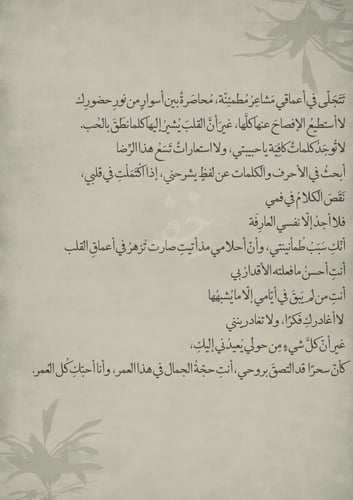 تَتَجَلّى في أعماقي مَشاعِرُ مُطمئِنّة، مُحاصَرةٌ بين أسوارٍ من نورِ حضورِك
لا أستطيعُ الإفصاحَ عنها كلَّها، غيرَ أنَّ القلبَ يُشيرُ إليها كلما نطقَ بالحُب.
لا تُوجَدُ كلماتٌ كافِيَة يا حبيبتي، ولا استعاراتٌ تَسَعُ هذا الرِّضا
أبحثُ في الأحرف والكلمات عن لفظٍ يشرحني، إذا اكْتَمَلَتِ في قلبي،
نَقَصَ الكلامُ في فمي
فلا أجدُ إلّا نفسي العارِفَة
أنّكِ سَبَبُ طُمأنينتي، وأنّ أحلامي مذ أتيتِ صارت تُزهرُ في أعماقِ القلب
أنتِ أحسنُ ما فعلته الأقدارُ بي
أنتِ من لم يَبقَ في أيّامي إلّا ما يُشبهُها
لا أغادركِ فَكرًا، ولا تغادرينني
غيرَ أنَّ كلَّ شيءٍ مِن حولي يُعيدُني إليكِ،
كأنّ سحرًا قد التصقَ بروحي، أنتِ حجّةُ الجمال في هذا العمر، وأنا أحبّكِ كُل العُمر.